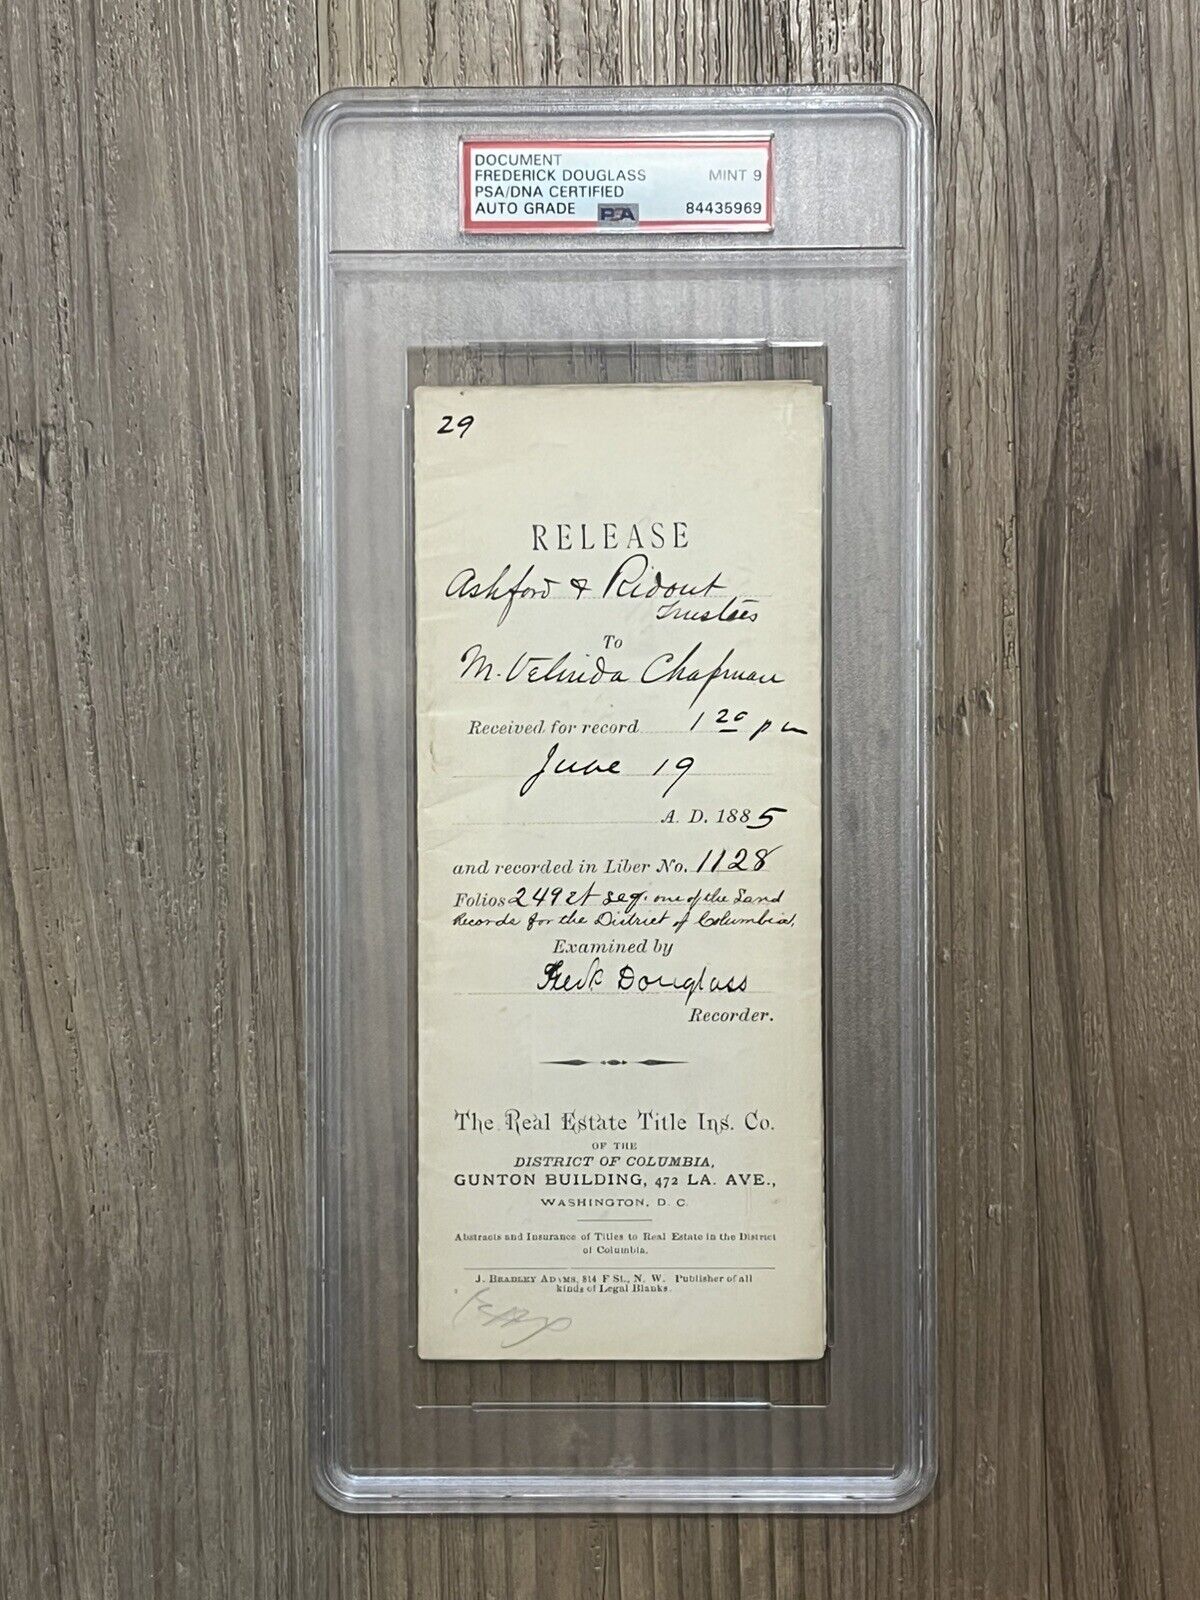 DOCUMENT
FREDERICK DOUGLASS MINT 9
PSA/DNA CERTIFIED
AUTO GRADE PSA 84435969
29
RELEASE
Ashford & Ridout
Trustees
To
M. Velinda Chapman
Received for record 1 20 pm
June 19
A. D. 1885
and recorded in Liber No. 1128
Folios 249 et seq. one of the Land
Records for the District of Columbia,
Examined by
Fredk Douglass
Recorder.
The Real Estate Title Ins. Co.
OF THE
DISTRICT OF COLUMBIA,
GUNTON BUILDING, 472 LA. AVE.,
WASHINGTON, D. C.
Abstracts and Insurance of Titles to Real Estate in the District
of Columbia.
J. BRADLEY ADAMS, 814 F St., N. W. Publisher of all
kinds of Legal Blanks.